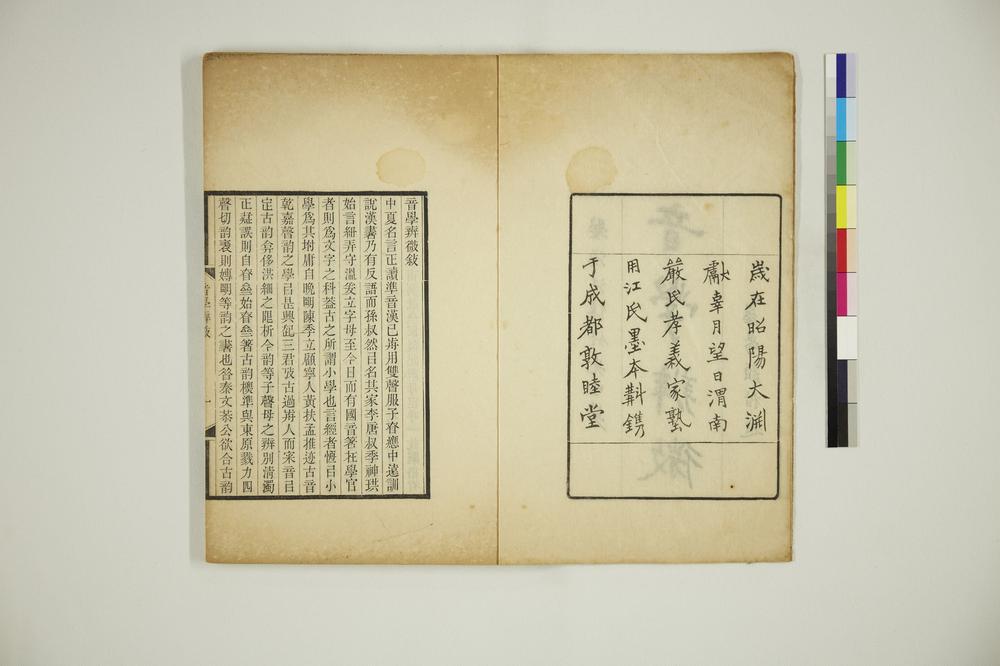 歲在昭陽大淵
獻辜月望日渭南
嚴氏孝義家塾
用江氏墨本斠鐫
于成都敦睦堂
音學辨微敍
中夏名言正讀準音漢已歬用雙聲服子眘應中遠訓
說漢書乃有反語而孫叔然㠯名其家李唐叔季神珙
始言紐弄守溫爰立字母至今日而有國音著在學官
者則爲文字之科蓋古之所謂小學也言經者恆㠯小
學爲其坿庸自晚明陳季立顧寧人黃扶孟推迹古音
乾嘉聲韵之學㠯是興起三君攷古過歬人而宋音㠯
定古韵弇侈洪細之限析今韵等子聲母之辨別清濁
正疑誤則自眘叁始眘叁著古韵標準與東原戮力四
聲切韵表則專明等韵之書也咎秦文恭公欲合古韵